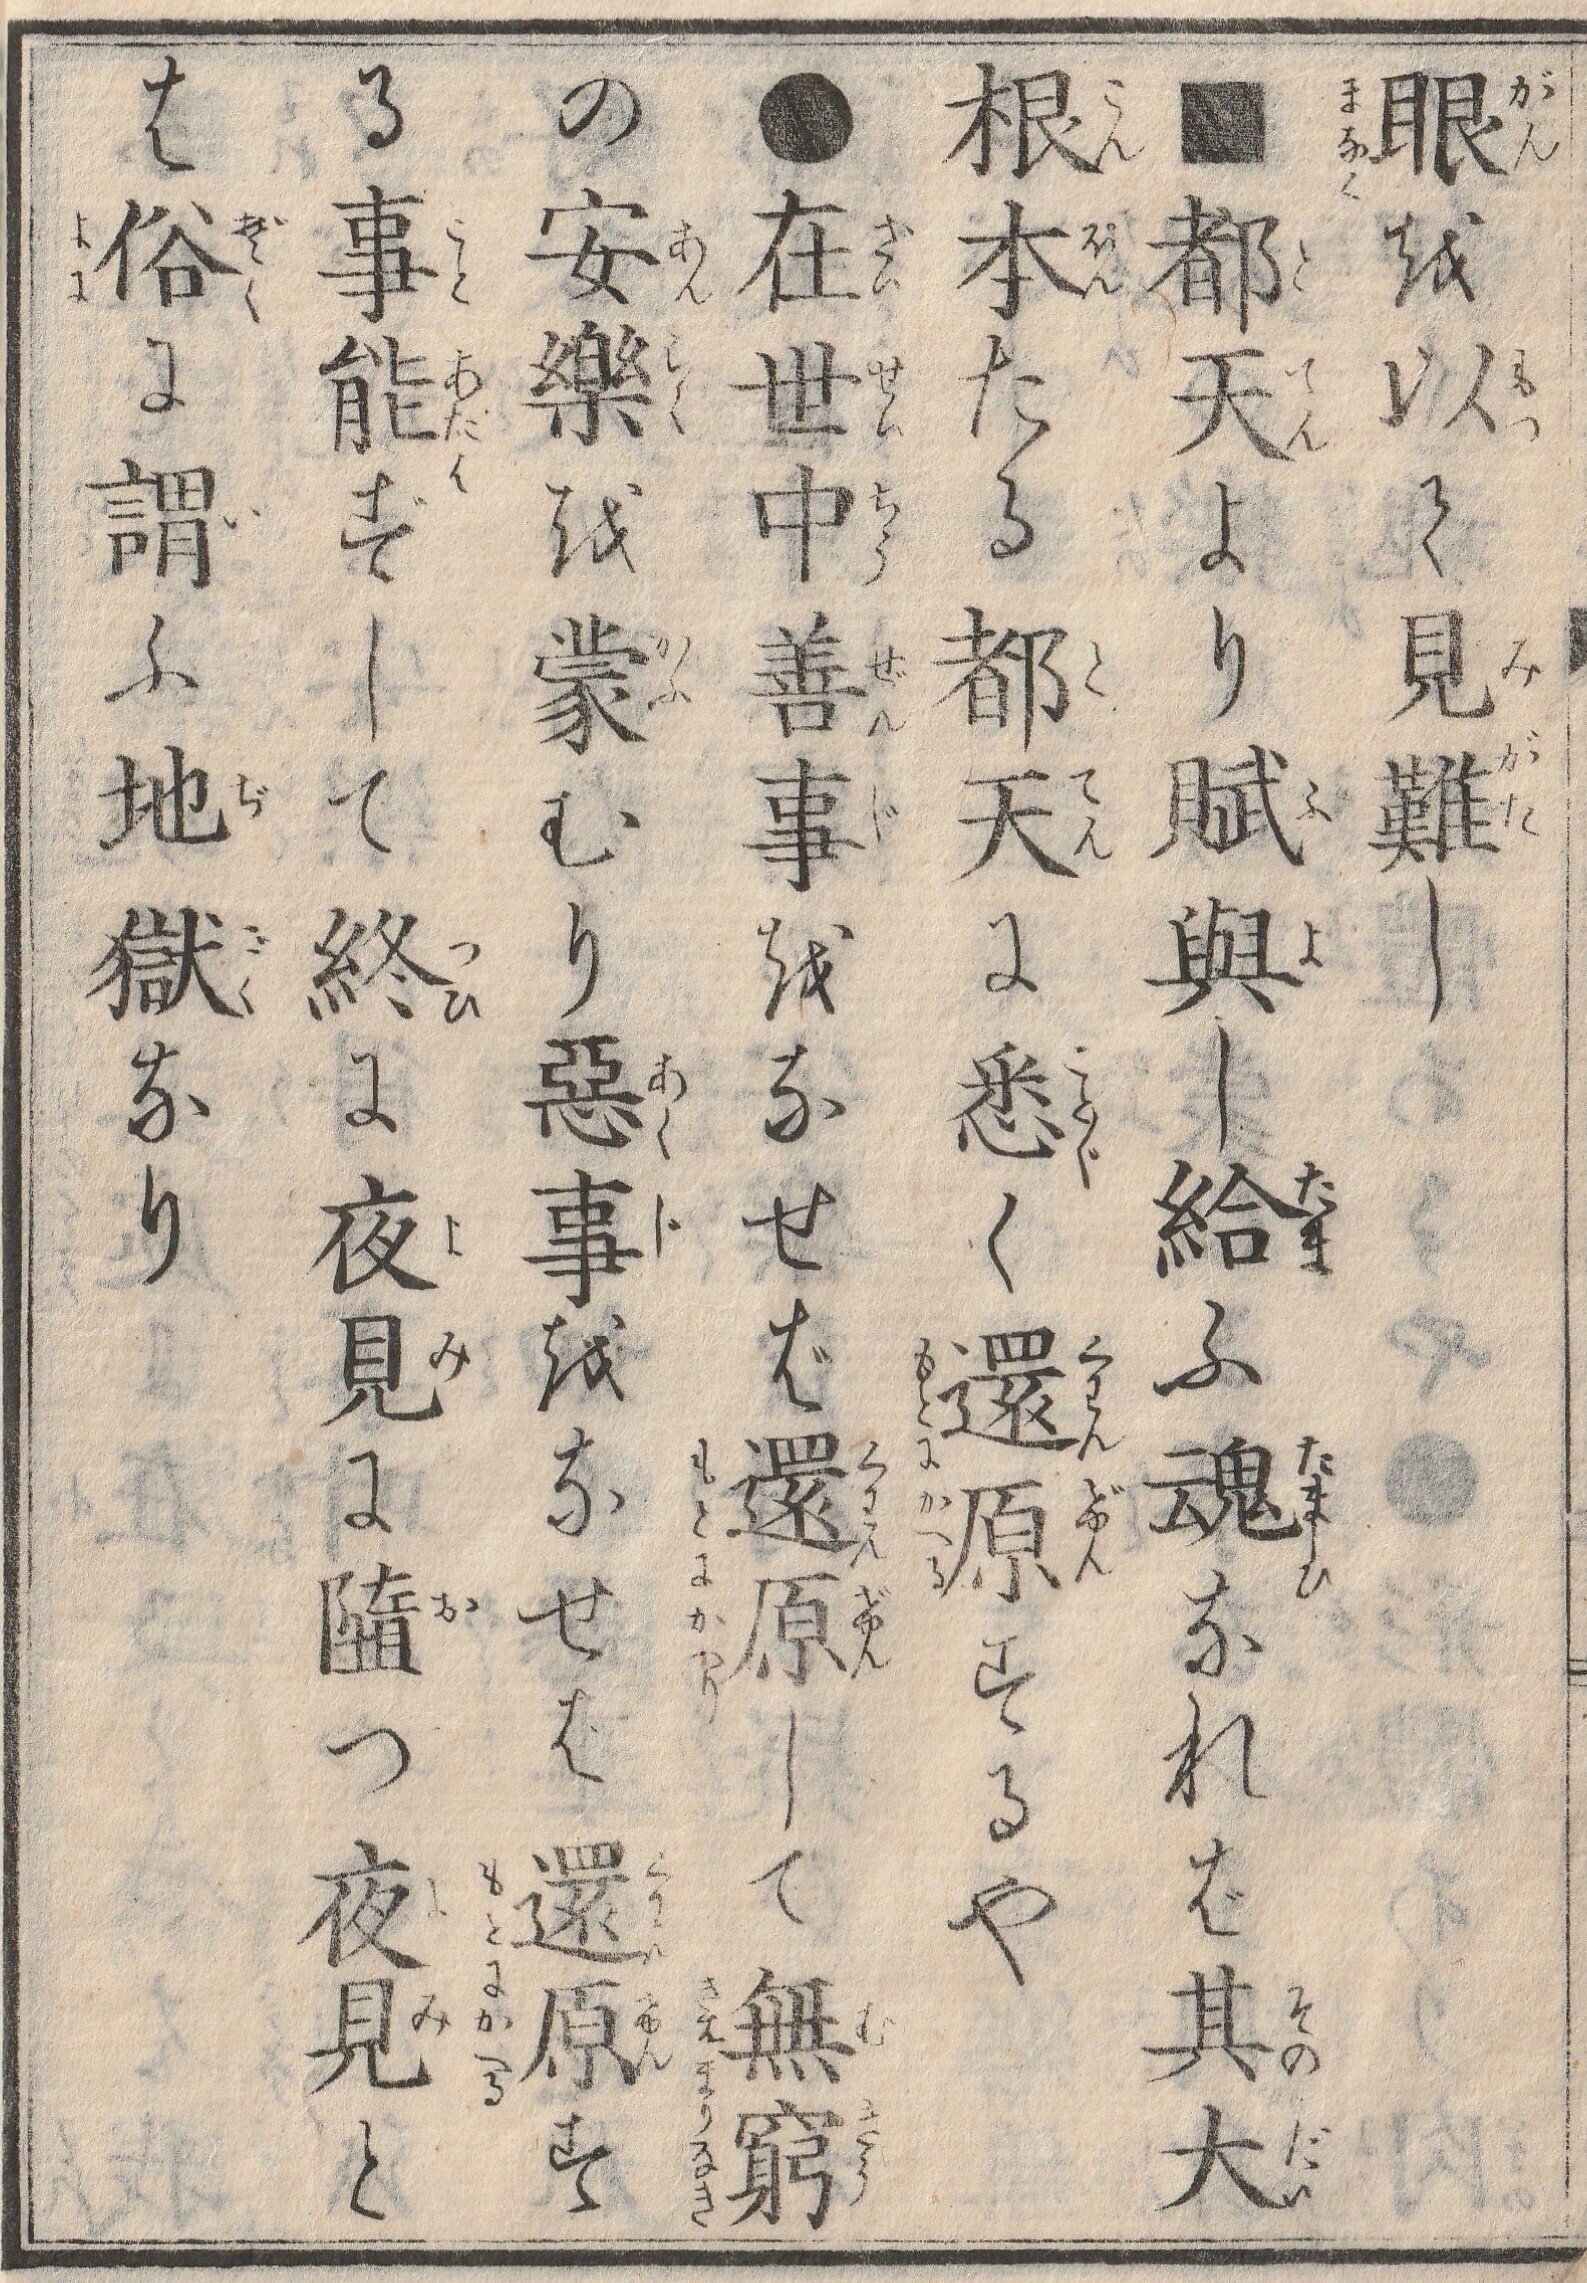 眼を以て見難し
■都天より賦與し給ふ魂なれば其大
根本たる都天に悉く還原するや
●在世中善事をなせば還原して無窮
の安樂を蒙むり惡事をなせば還原す
る事能ずして終に夜見に墮つ夜見と
は俗に謂ふ地獄なり